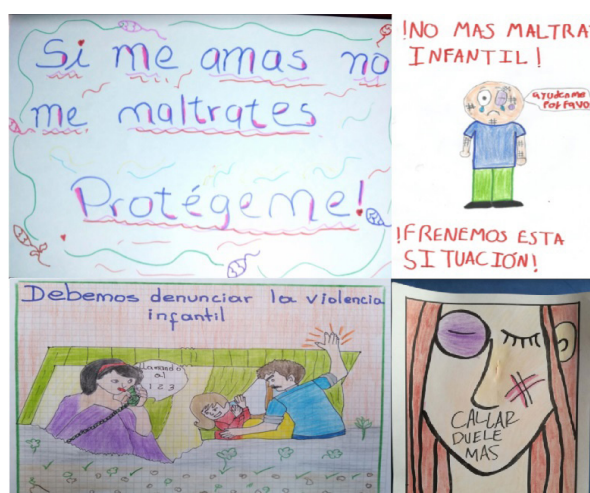 Si me amas no
me maltrates
Protégeme!
!NO MAS MALTRA
INFANTIL!
ayudeame
Por FAVO
!FRENEMOS ESTA
SITUACIÓN!
Debemos denunciar la violencia
infantil
Llamando
al
1 2 3
CALLAR
DUELE
MAS